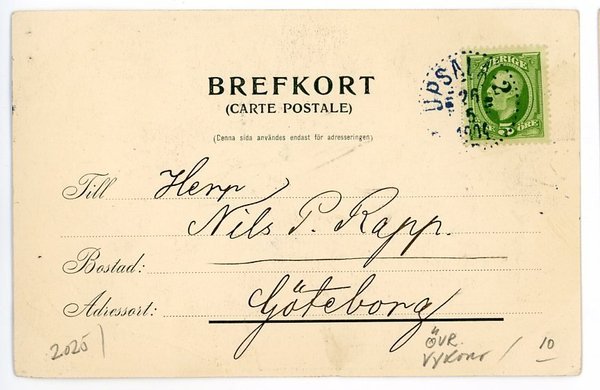 BREFKORT
(CARTE POSTALE)
(Denna sida användes endast för adresseringen)
SVERIGE
5 ÖRE
UPSALA
Till Herr
Nils P. Rapp.
Bostad:
Adressort: Göteborg
2025)
ÖVR.
VYKORT / 10